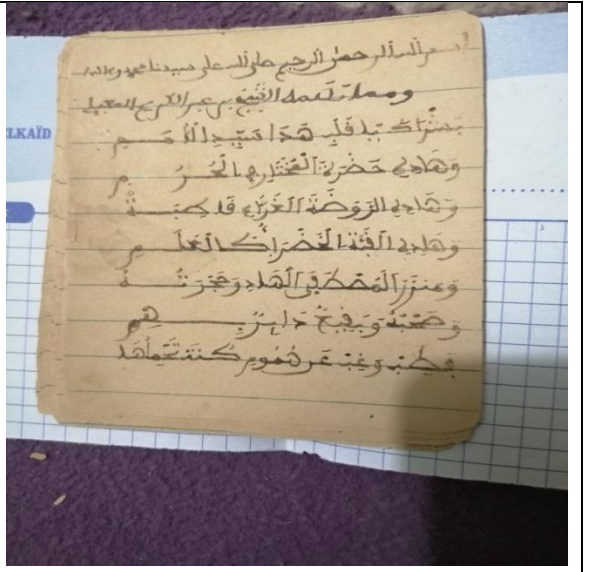 بسم الله الرحمن الرحيم صلى الله على سيدنا محمد وءاله
ومما نظمه الشيخ بن عبد الكريم المغيلي
بشراك يا قلب هذا سيد الأمم
وهذه حضرة المختار في الحرم
وهذه الروضة الغراء ظاهرة
وهذه القبة الخضراء كالعلم
ومنزل المصطفى الهادي وحجرته
وصحبه وبقيع دائر بهم
فطب وغب عن هموم كنت تحملها
ELKAÏD